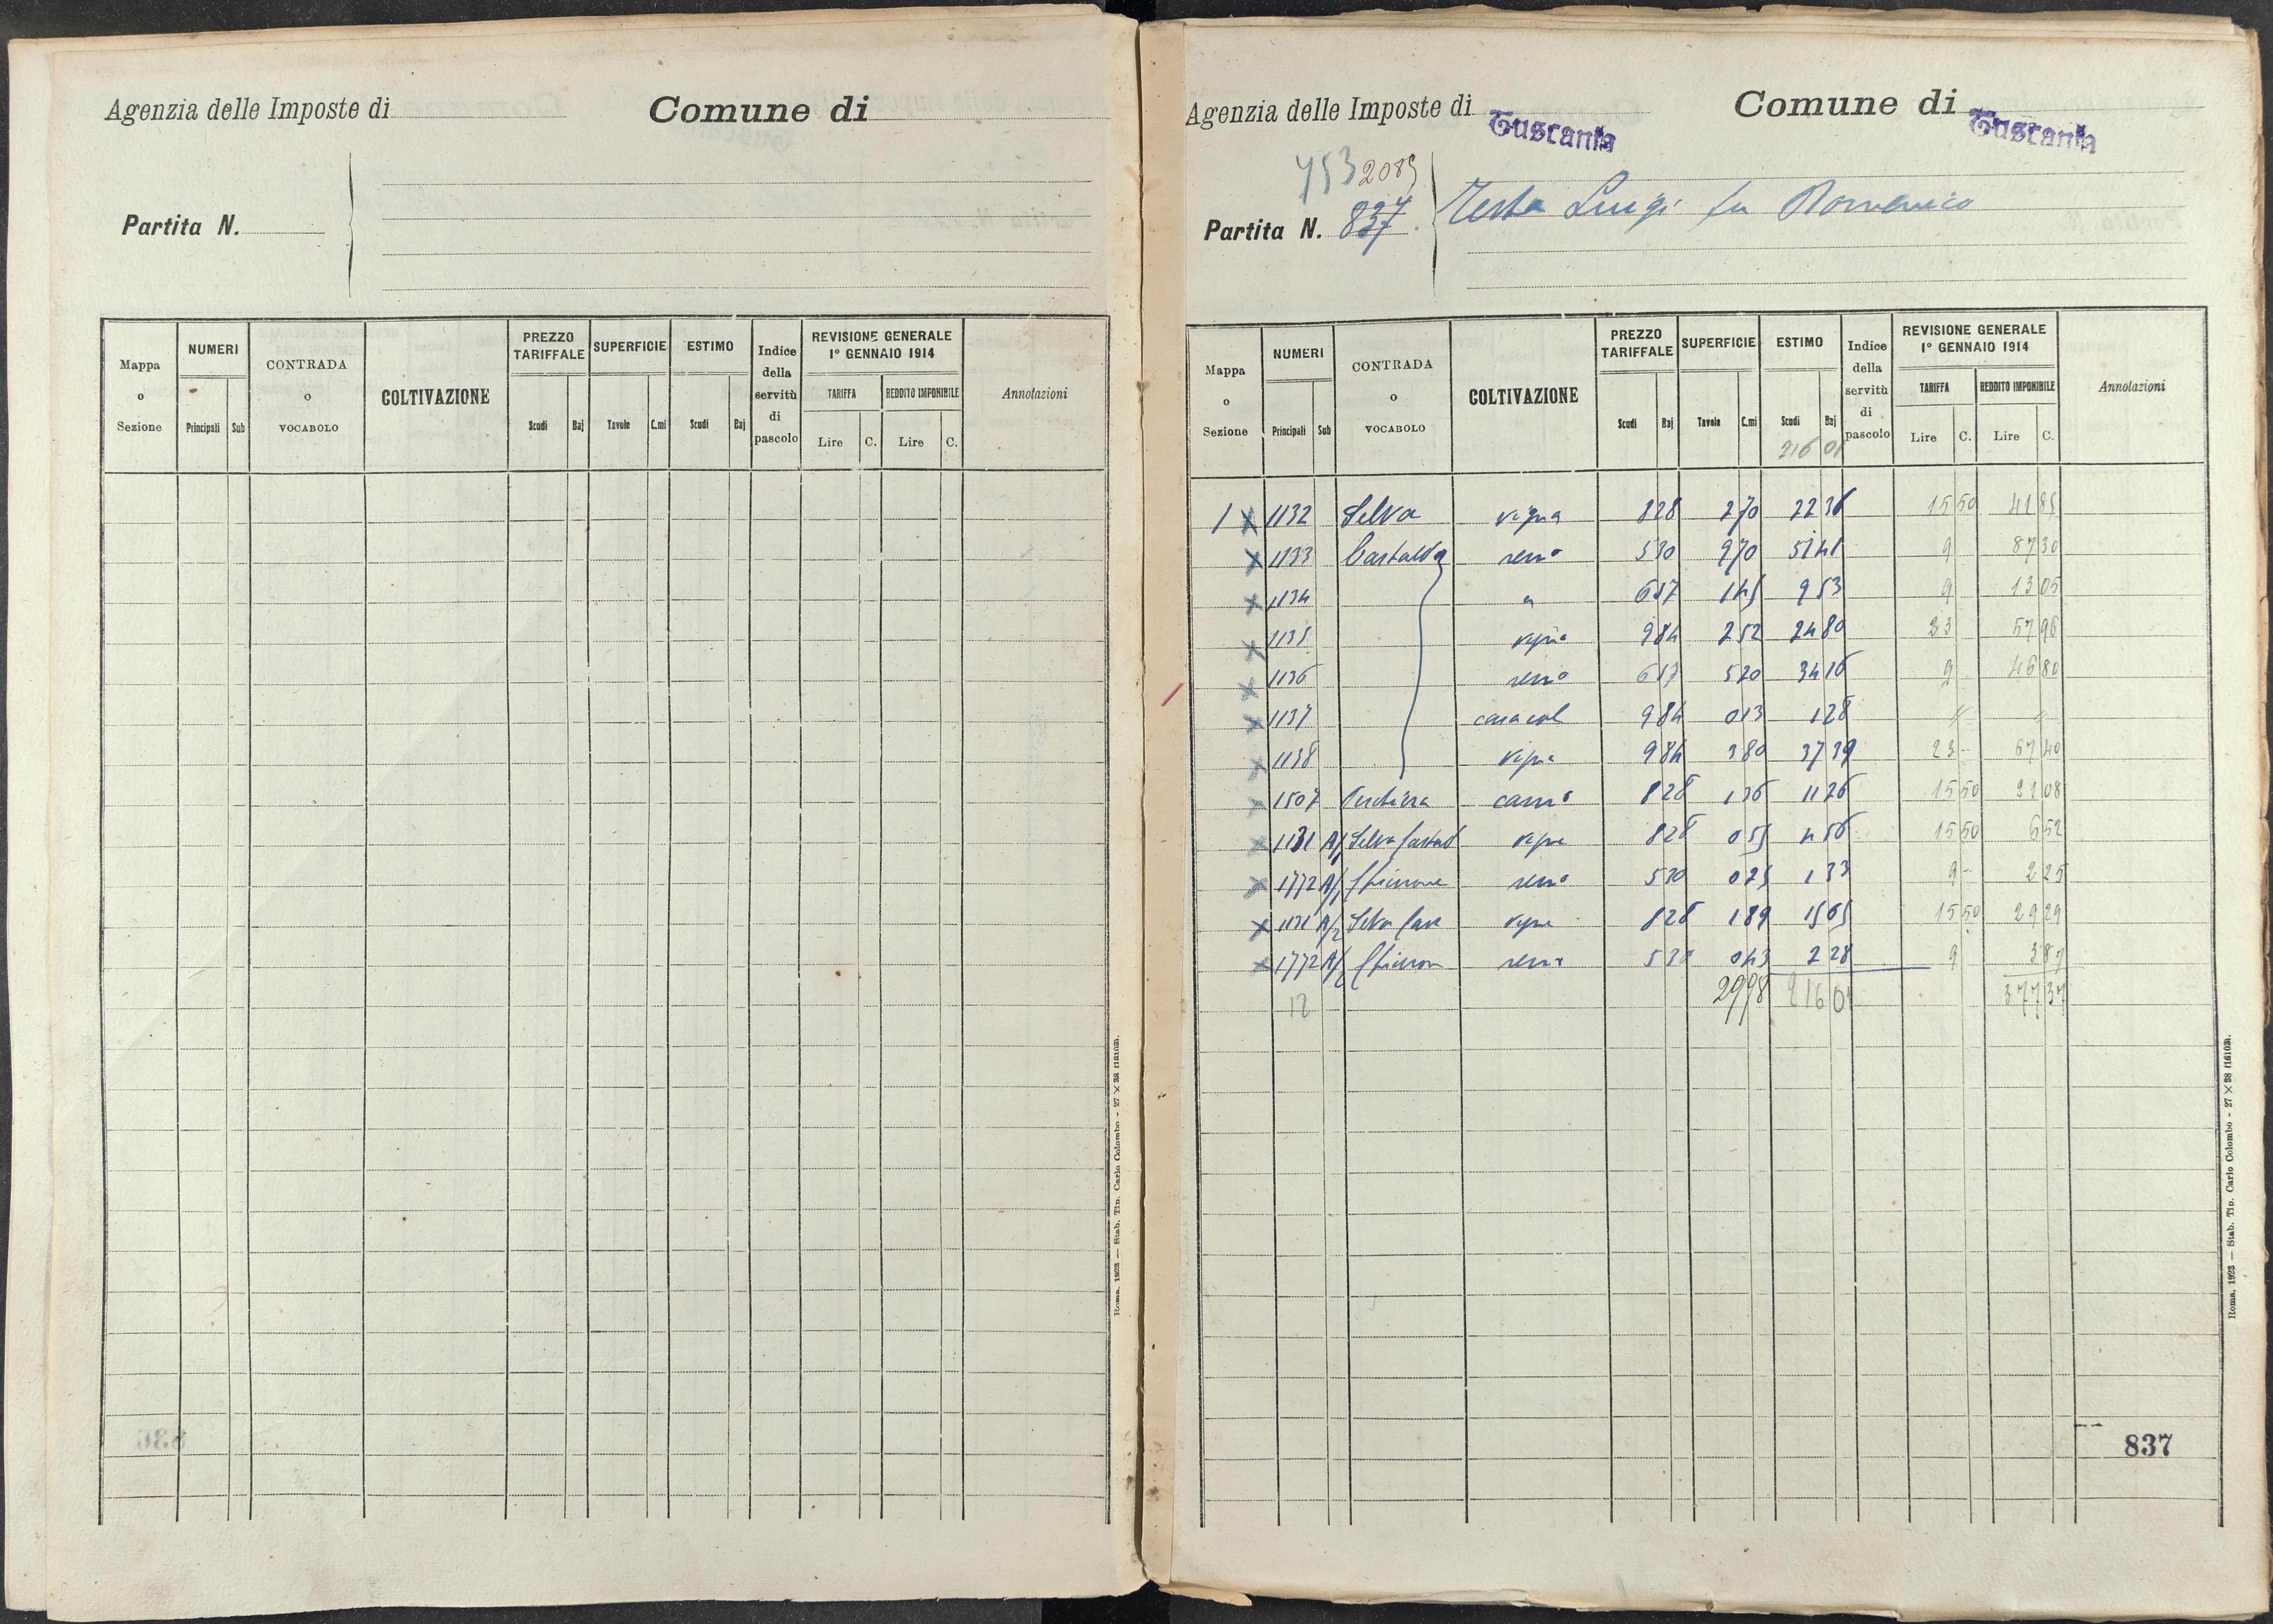 Agenzia delle Imposte di Comune di
Partita N.
Mappa o Sezione
NUMERI
Principali Sub
CONTRADA o VOCABOLO
COLTIVAZIONE
PREZZO TARIFFALE
Scudi Baj
SUPERFICIE
Tavole C.mi
ESTIMO
Scudi Baj
Indice della servitù di pascolo
REVISIONE GENERALE 1° GENNAIO 1914
TARIFFA REDDITO IMPONIBILE
Lire C. Lire C.
Annotazioni
Roma, 1923 — Stab. Tip. Carlo Colombo - 27 × 38 (16103).
Agenzia delle Imposte di Tuscania Comune di Tuscania
753 2085
Partita N. 837 Testa Luigi fu Domenico
Mappa o Sezione
NUMERI
Principali Sub
CONTRADA o VOCABOLO
COLTIVAZIONE
PREZZO TARIFFALE
Scudi Baj
SUPERFICIE
Tavole C.mi
ESTIMO
Scudi Baj
216 01
Indice della servitù di pascolo
REVISIONE GENERALE 1° GENNAIO 1914
TARIFFA REDDITO IMPONIBILE
Lire C. Lire C.
Annotazioni
1 x 1132 Selva vigna 8 28 2 70 22 36 15 50 41 85
x 1133 Castalda semo 5 30 9 70 51 41 9 87 30
x 1134 " 6 57 1 45 9 53 9 13 05
x 1135 vigna 9 84 2 52 24 80 23 57 96
x 1136 semo 6 57 5 20 34 16 9 46 80
x 1137 casa col 9 84 0 13 1 28 " "
x 1138 vigna 9 84 3 80 37 39 23 - 87 40
x 1507 canno 8 28 1 36 11 26 15 50 21 08
x 1131 A/1 Selva Castald vigna 8 28 0 55 4 56 15 50 8 52
x 1772 A/1 semo 5 30 0 25 1 33 9 - 2 25
x 1131 A/2 Selva Cast vigna 8 28 1 89 15 65 15 50 29 29
x 1772 A/2 semo 5 30 0 43 2 28 9 3 87
12 29 98 216 01 377 37
837
Roma, 1923 — Stab. Tip. Carlo Colombo - 27 × 38 (16103).